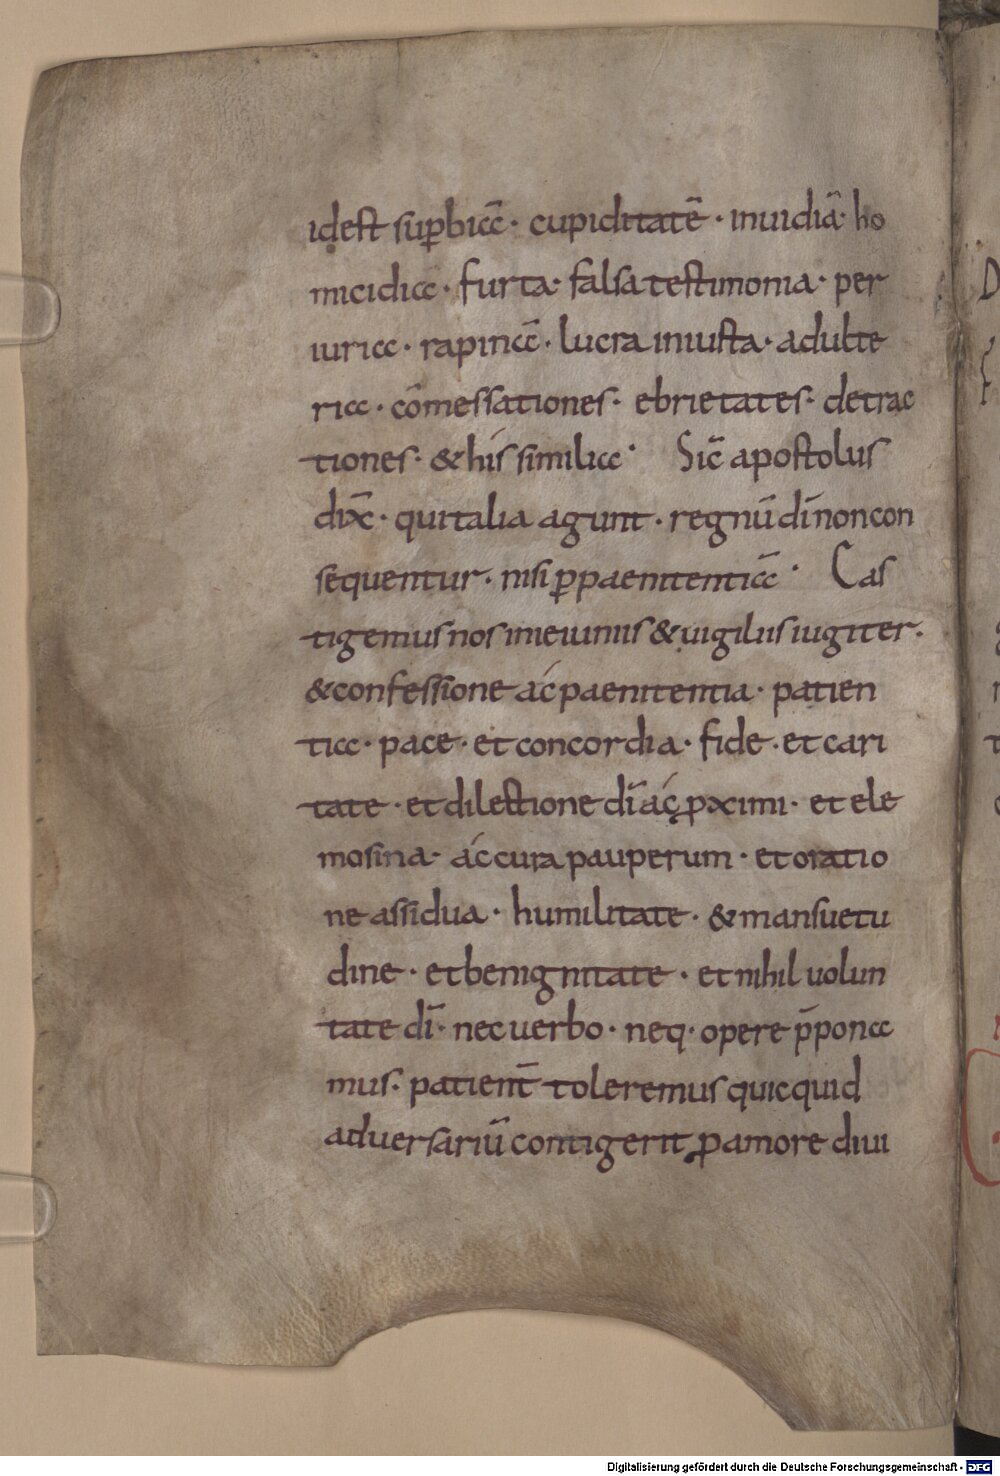 idest sup̄biā· cupiditatē· inuidiā· ho
micidia· furta· falsa testimonia· per
iuria· rapinā· lucra iniusta· adulte
ria· cōmessationes· ebrietates· detrac
tiones· & his similia· Sic̄ apostolus
dix̄· qui talia agunt· regnū dī non con
sequentur· nisi p̄ paenitentiā· Cas
tigemus nos in ieiuniis & uigiliis iugiter·
& confessione ac paenitentia· patien
tia· pace· et concordia· fide· et cari
tate· et dilectione dī ac ꝓximi· et ele
mosina· ac cura pauperum· et oratio
ne assidua· humilitate· & mansuetu
dine· et benignitate· et nihil uolun
tate dī· nec uerbo· neq· opere p̄pona
mus· patient̄ toleremus quicquid
aduersariū contigerit ꝓ amore diui
Digitalisierung gefördert durch die Deutsche Forschungsgemeinschaft - DFG